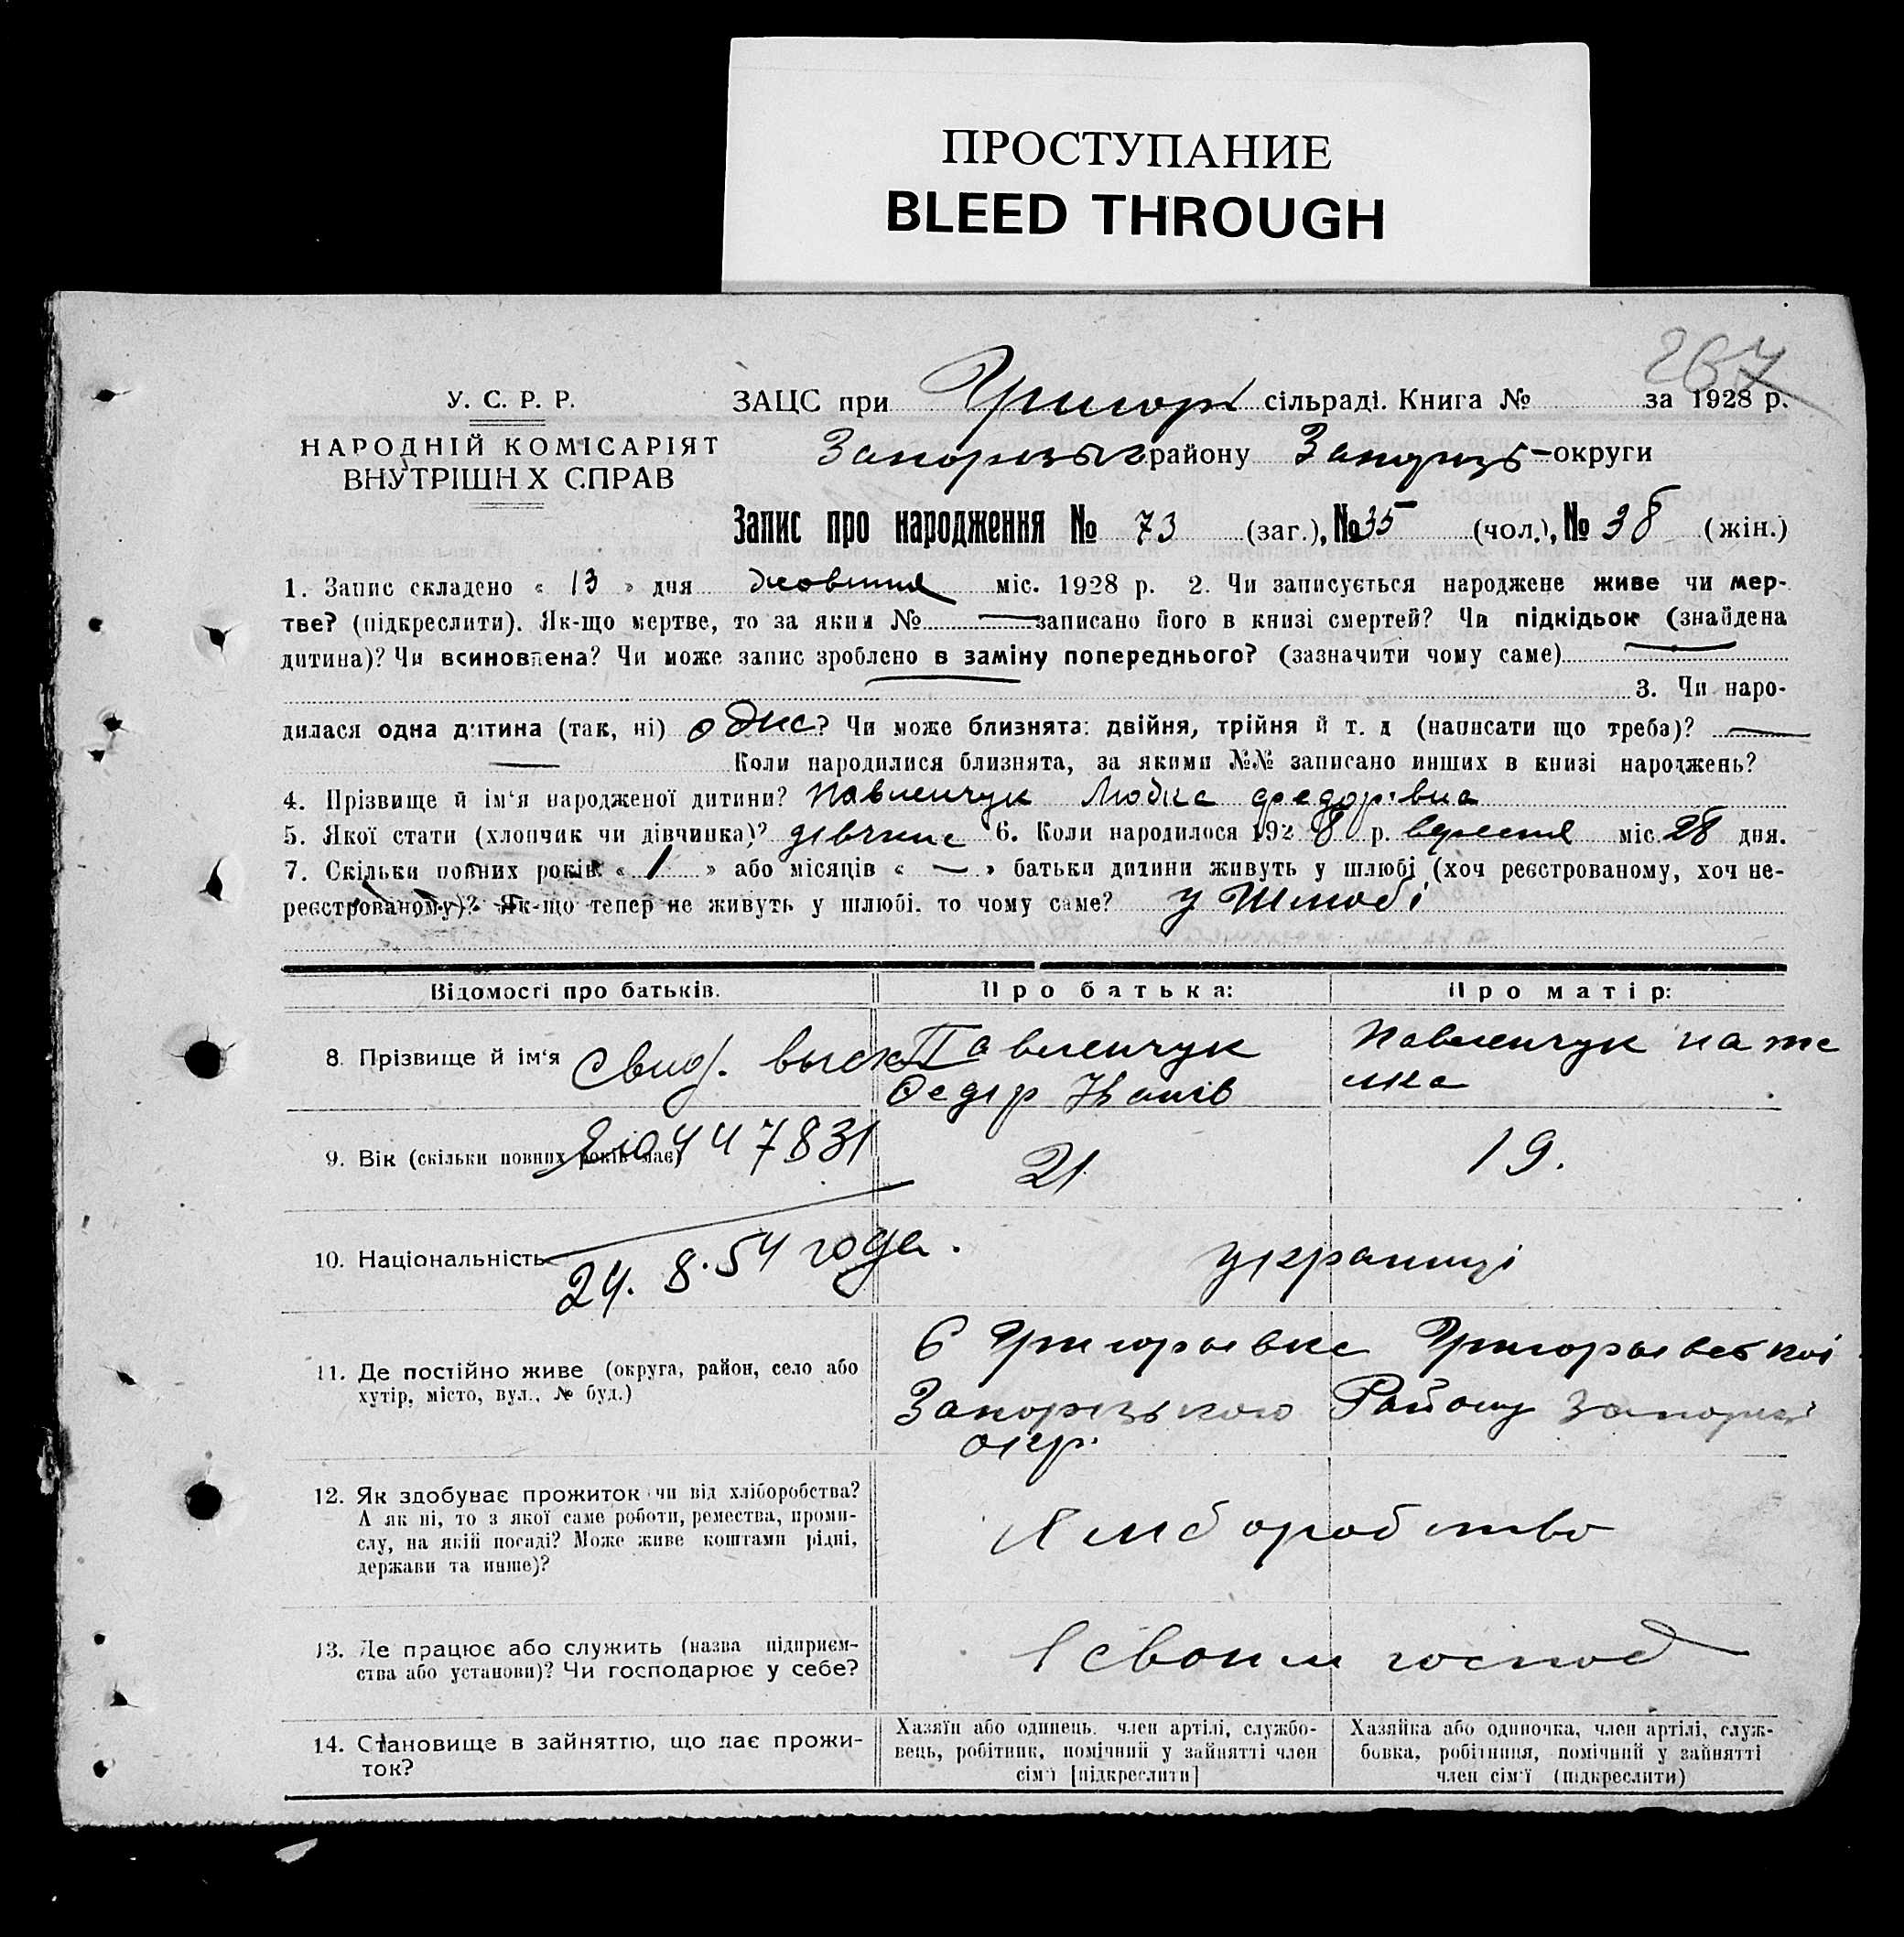 ПРОСТУПАНИЕ
BLEED THROUGH
267
У. С. Р. Р.
НАРОДНІЙ КОМІСАРІЯТ
ВНУТРІШН Х СПРАВ
ЗАЦС при Григор сільраді. Книга № за 1928 р.
району округи
Запис про народження № 73 (заг.), № 35 (чол.), № 38 (жін.)
1. Запис складено « 13 » дня жовтня міс. 1928 р. 2. Чи записується народжене живе чи мер-
тве? (підкреслити). Як-що мертве, то за яким № — записано його в книзі смертей? Чи підкідьок (знайдена
дитина)? Чи всиновлена? Чи може запис зроблено в заміну попереднього? (зазначити чому саме) —
3. Чи наро-
дилася одна дитина (так, ні) одна? Чи може близнята: двійня, трійня й т. д (написати що треба)? —
— Коли народилися близнята, за якими №№ записано инших в книзі народжень?
4. Прізвище й ім'я народженої дитини? Павленчук Любка Федорівна
5. Якої стати (хлопчик чи дівчинка)? дівчина 6. Коли народилося 1928 р. вересня міс. 28 дня.
7. Скільки повних років « 1 » або місяців « — » батьки дитини живуть у шлюбі (хоч реєстрованому, хоч не-
реєстрованому)? Як-що тепер не живуть у шлюбі, то чому саме? у Шлюбі
Відомості про батьків. Про батька: Про матір:
8. Прізвище й ім'я Павленчук Федір Іванів Павленчук Наталка
Свид.
9. Вік (скільки повних років має) 21 19.
447831
10. Національність українці
24. 8. 54 года.
11. Де постійно живе (округа, район, село або
хутір, місто, вул., № буд.)
С Григорьевка
Запорізького Району
окр.
12. Як здобуває прожиток чи від хліборобства?
А як ні, то з якої саме роботи, ремества, проми-
слу, на якій посаді? Може живе коштами рідні,
держави та инше)?
Хліборобство
13. Де працює або служить (назва підприєм-
ства або установи)? Чи господарює у себе?
своїм господ
14. Становище в зайняттю, що дає прожи-
ток?
Хазяїн або одинець, член артілі, службо-
вець, робітник, помічний у зайнятті член
сім'ї [підкреслити]
Хазяйка або одиночка, член артілі, служ-
бовка, робітниця, помічний у зайнятті
член сім'ї (підкреслити)